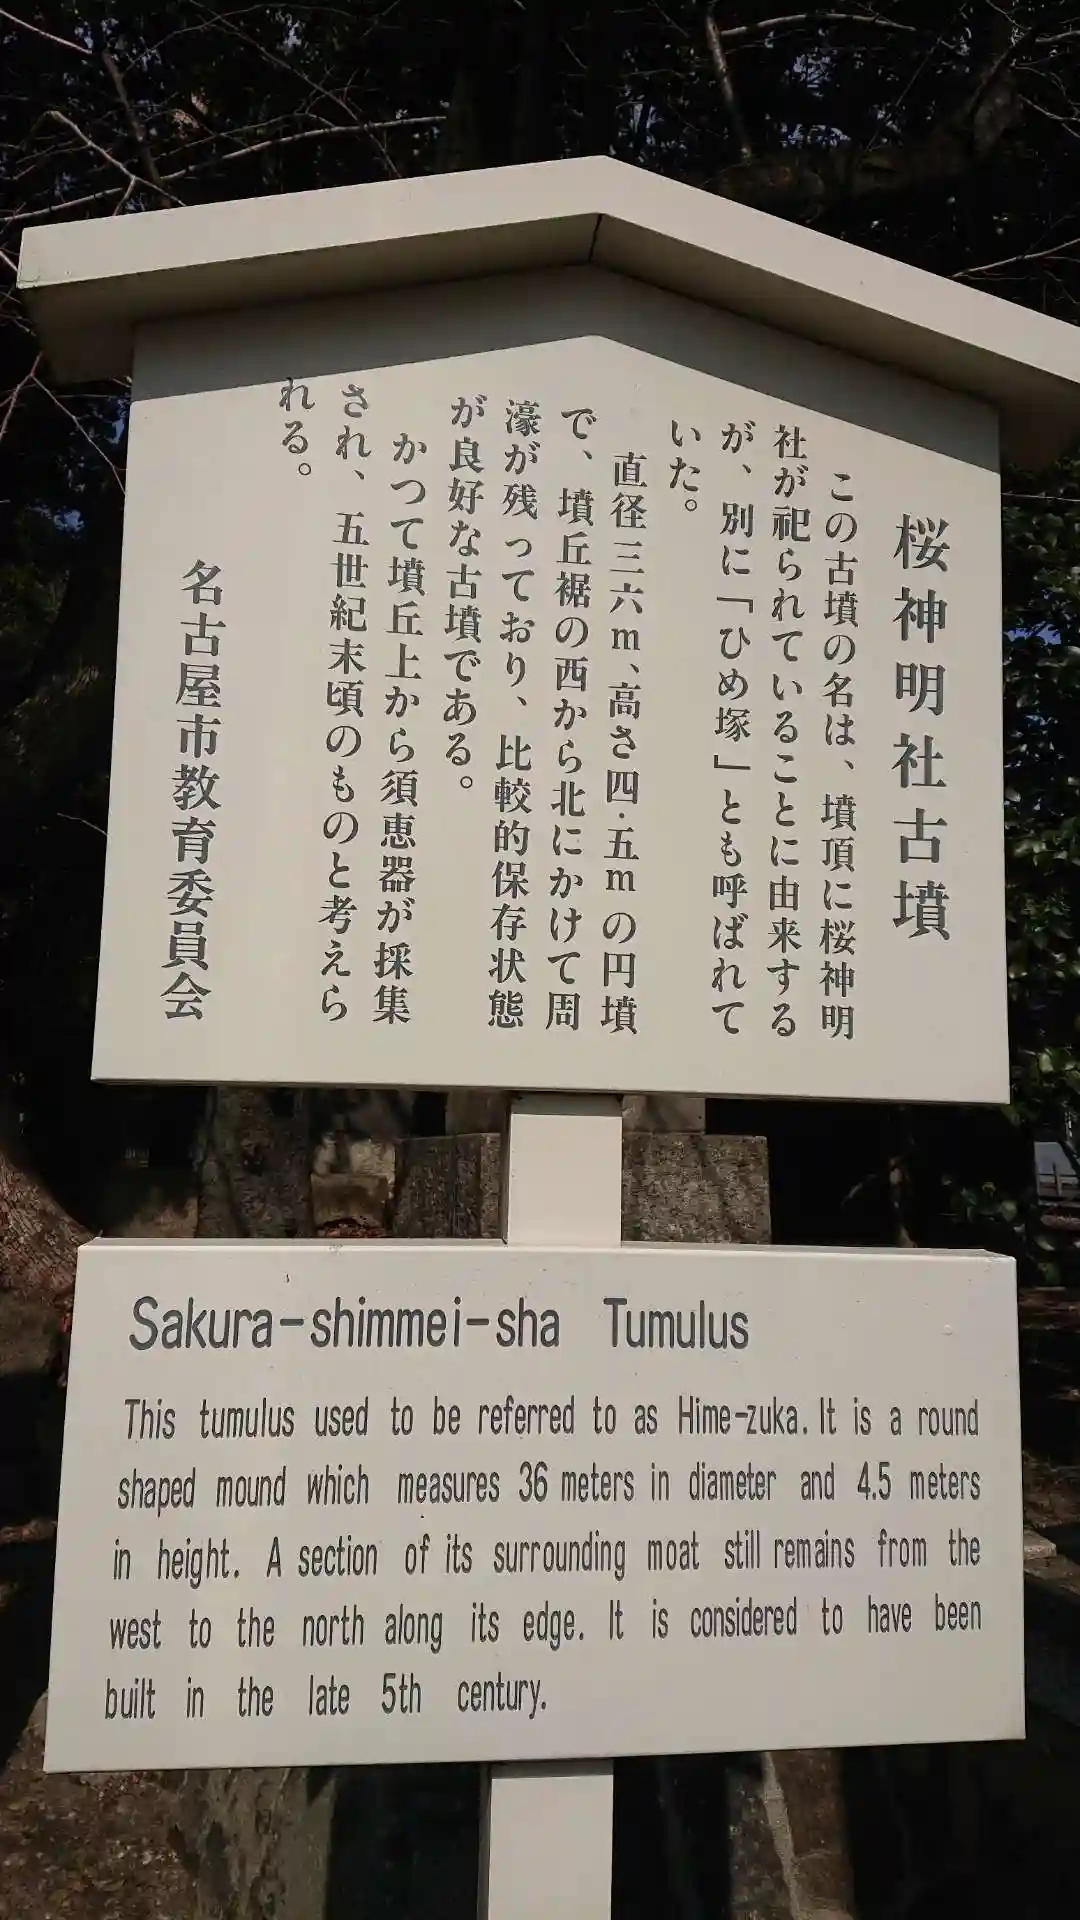 桜神明社古墳
この古墳の名は、墳頂に桜神明
社が祀られていることに由来する
が、別に「ひめ塚」とも呼ばれて
いた。
直径三六m、高さ四·五mの円墳
で、墳丘裾の西から北にかけて周
濠が残っており、比較的保存状態
が良好な古墳である。
かつて墳丘上から須恵器が採集
され、五世紀末頃のものと考えら
れる。
名古屋市教育委員会
Sakura-shimmei-sha Tumulus
This tumulus used to be referred to as Hime-zuka. It is a round
shaped mound which measures 36 meters in diameter and 4.5 meters
in height. A section of its surrounding moat still remains from the
west to the north along its edge. It is considered to have been
built in the late 5th century.